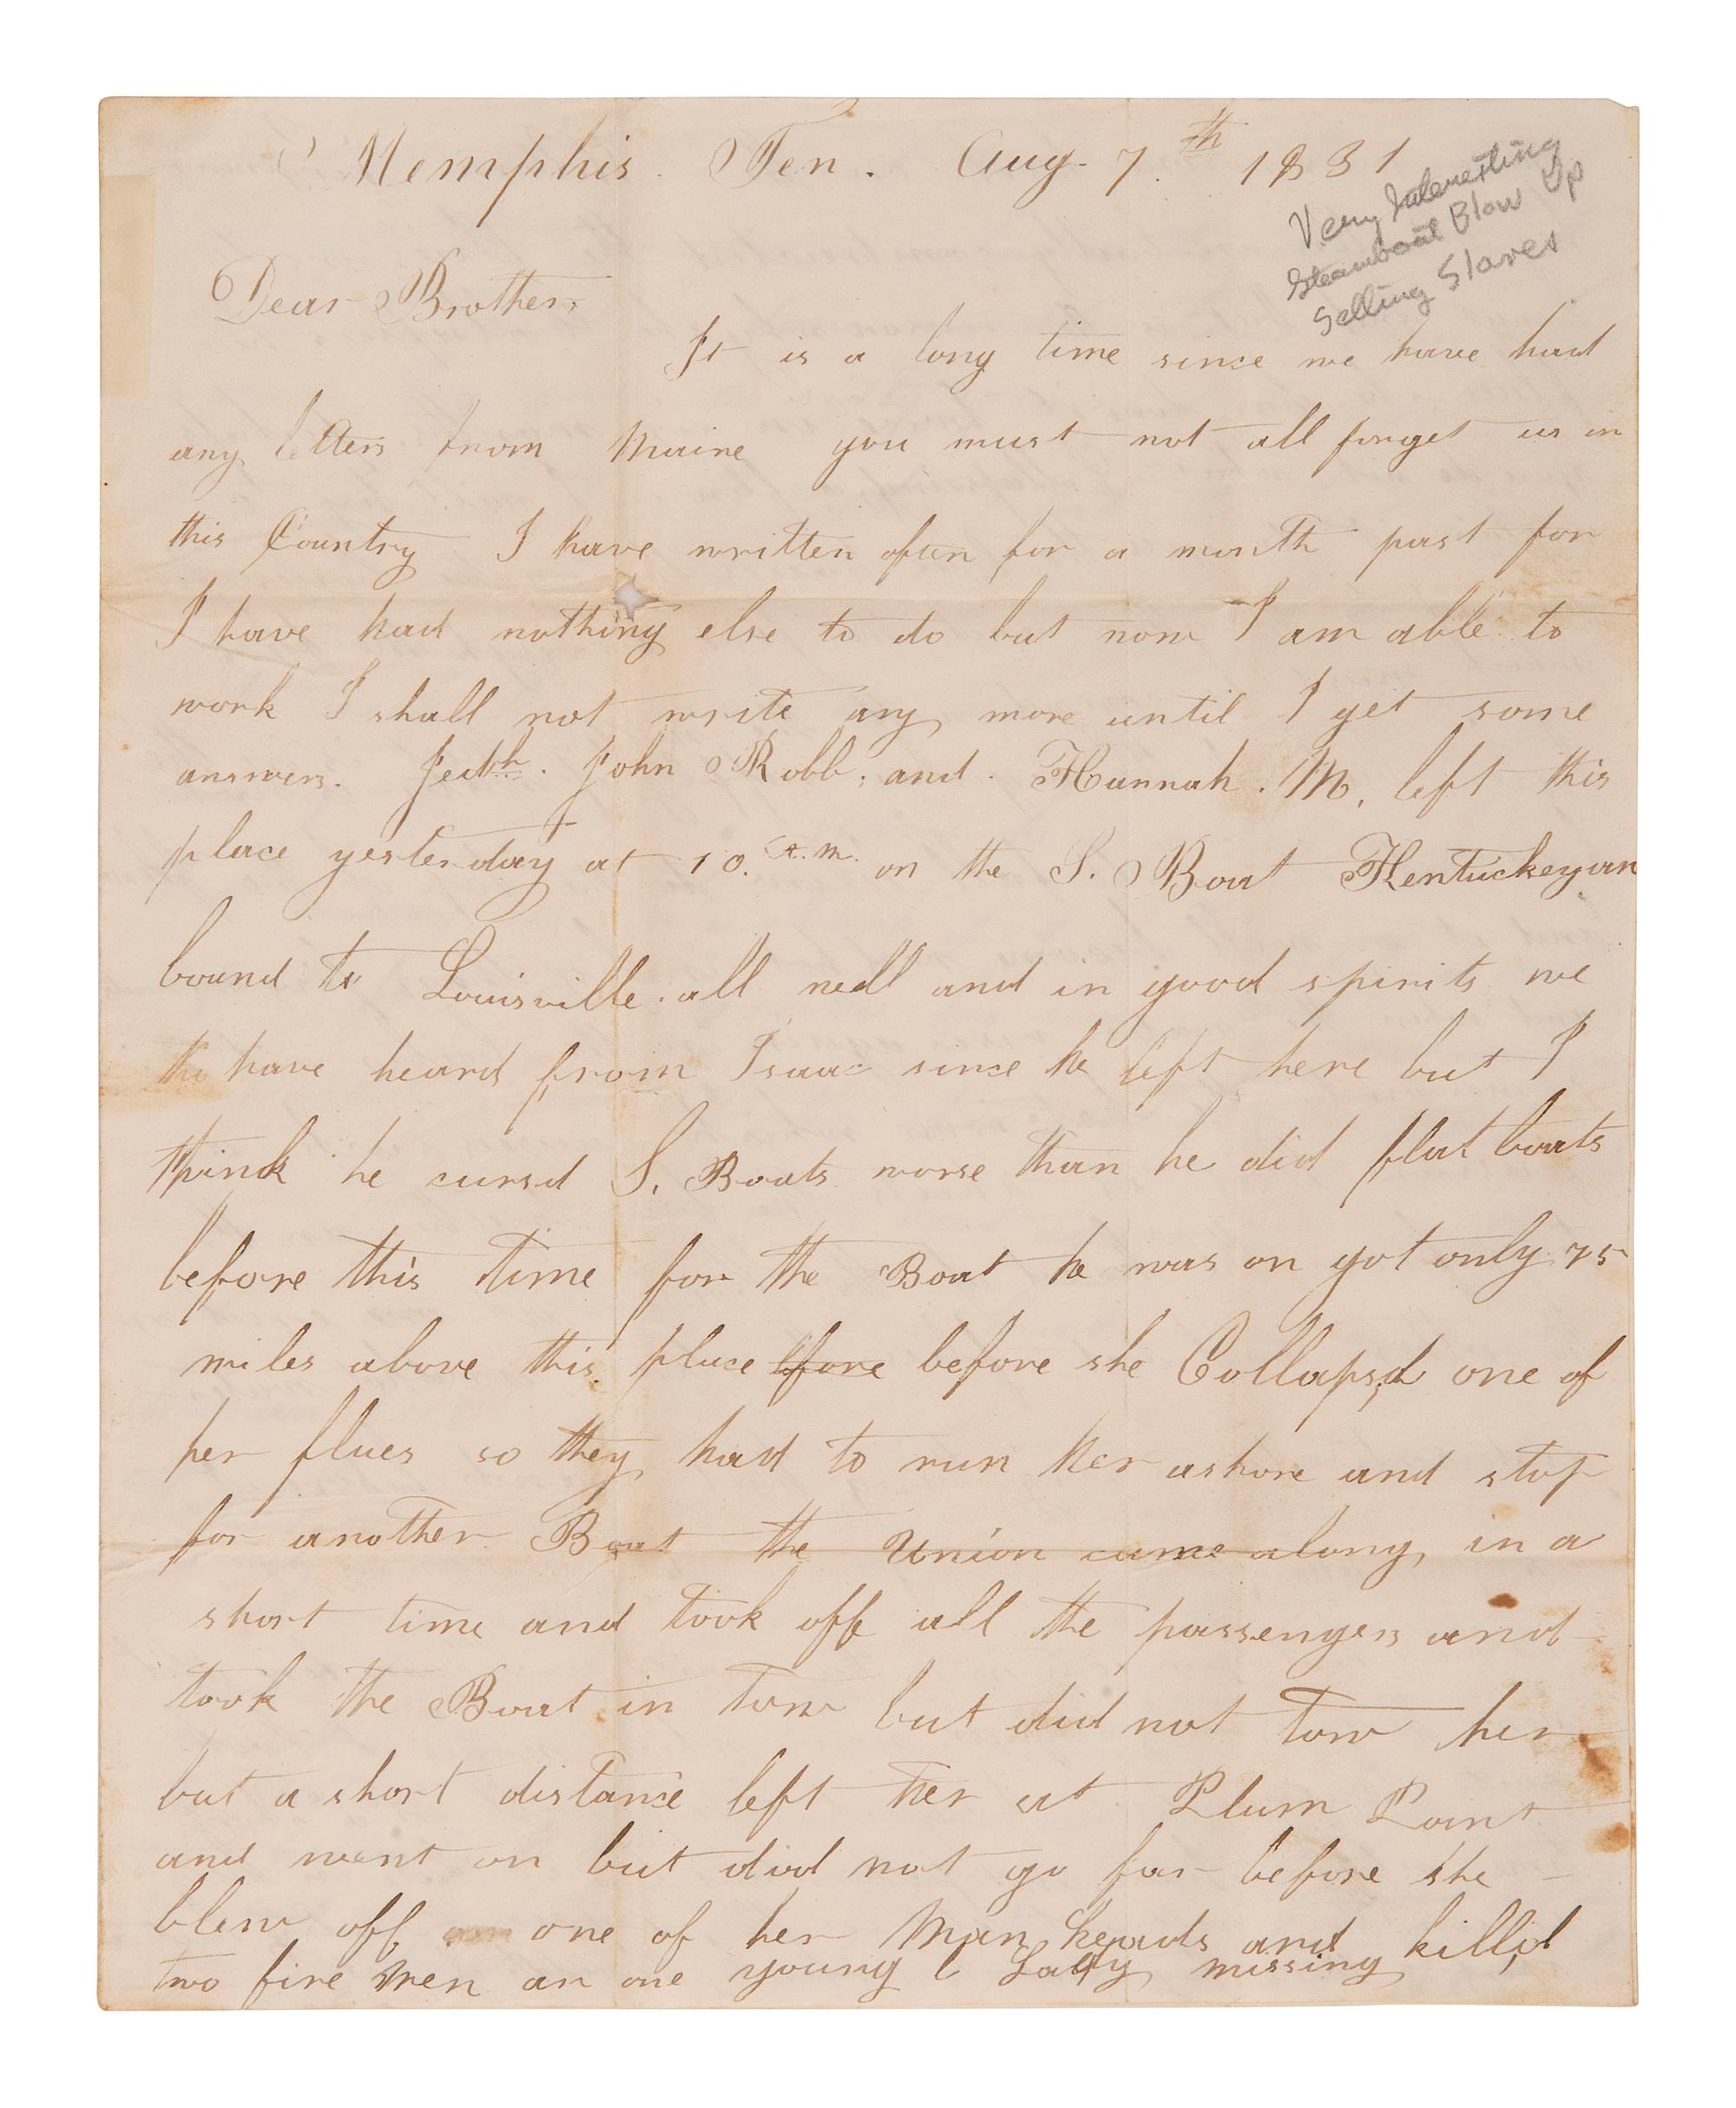 Memphis. Ten. Aug. 7.th 1831
Very Interesting
Steamboat Blow Up
Selling Slaves
Dear Brother,
It is a long time since we have had
any letters from Maine you must not all forget us in
this Country I have written often for a month past for
I have had nothing else to do but now I am able to
work I shall not write any more until I get some
answers. Jedth. John Robb, and Hannah. M. left this
place yesterday at 10. A.M. on the S. Boat Kentuckeyan
bound to Louisville. all well and in good spirits we
have heard from Isaac since he left here but I
think he cursd S. Boats worse than he did flat boats
before this time for the Boat he was on got only 75
miles above this place bfore before she Collapsd one of
her flues so they had to run her ashore and stop
for another Boat the Union came along in a
short time and took off all the passengers and
took the Boat in tow but did not tow her
but a short distance left her at Plum Point
and went on but did not go far before she
blew off one of her Man heads and killd
two fire men an one young Lady missing